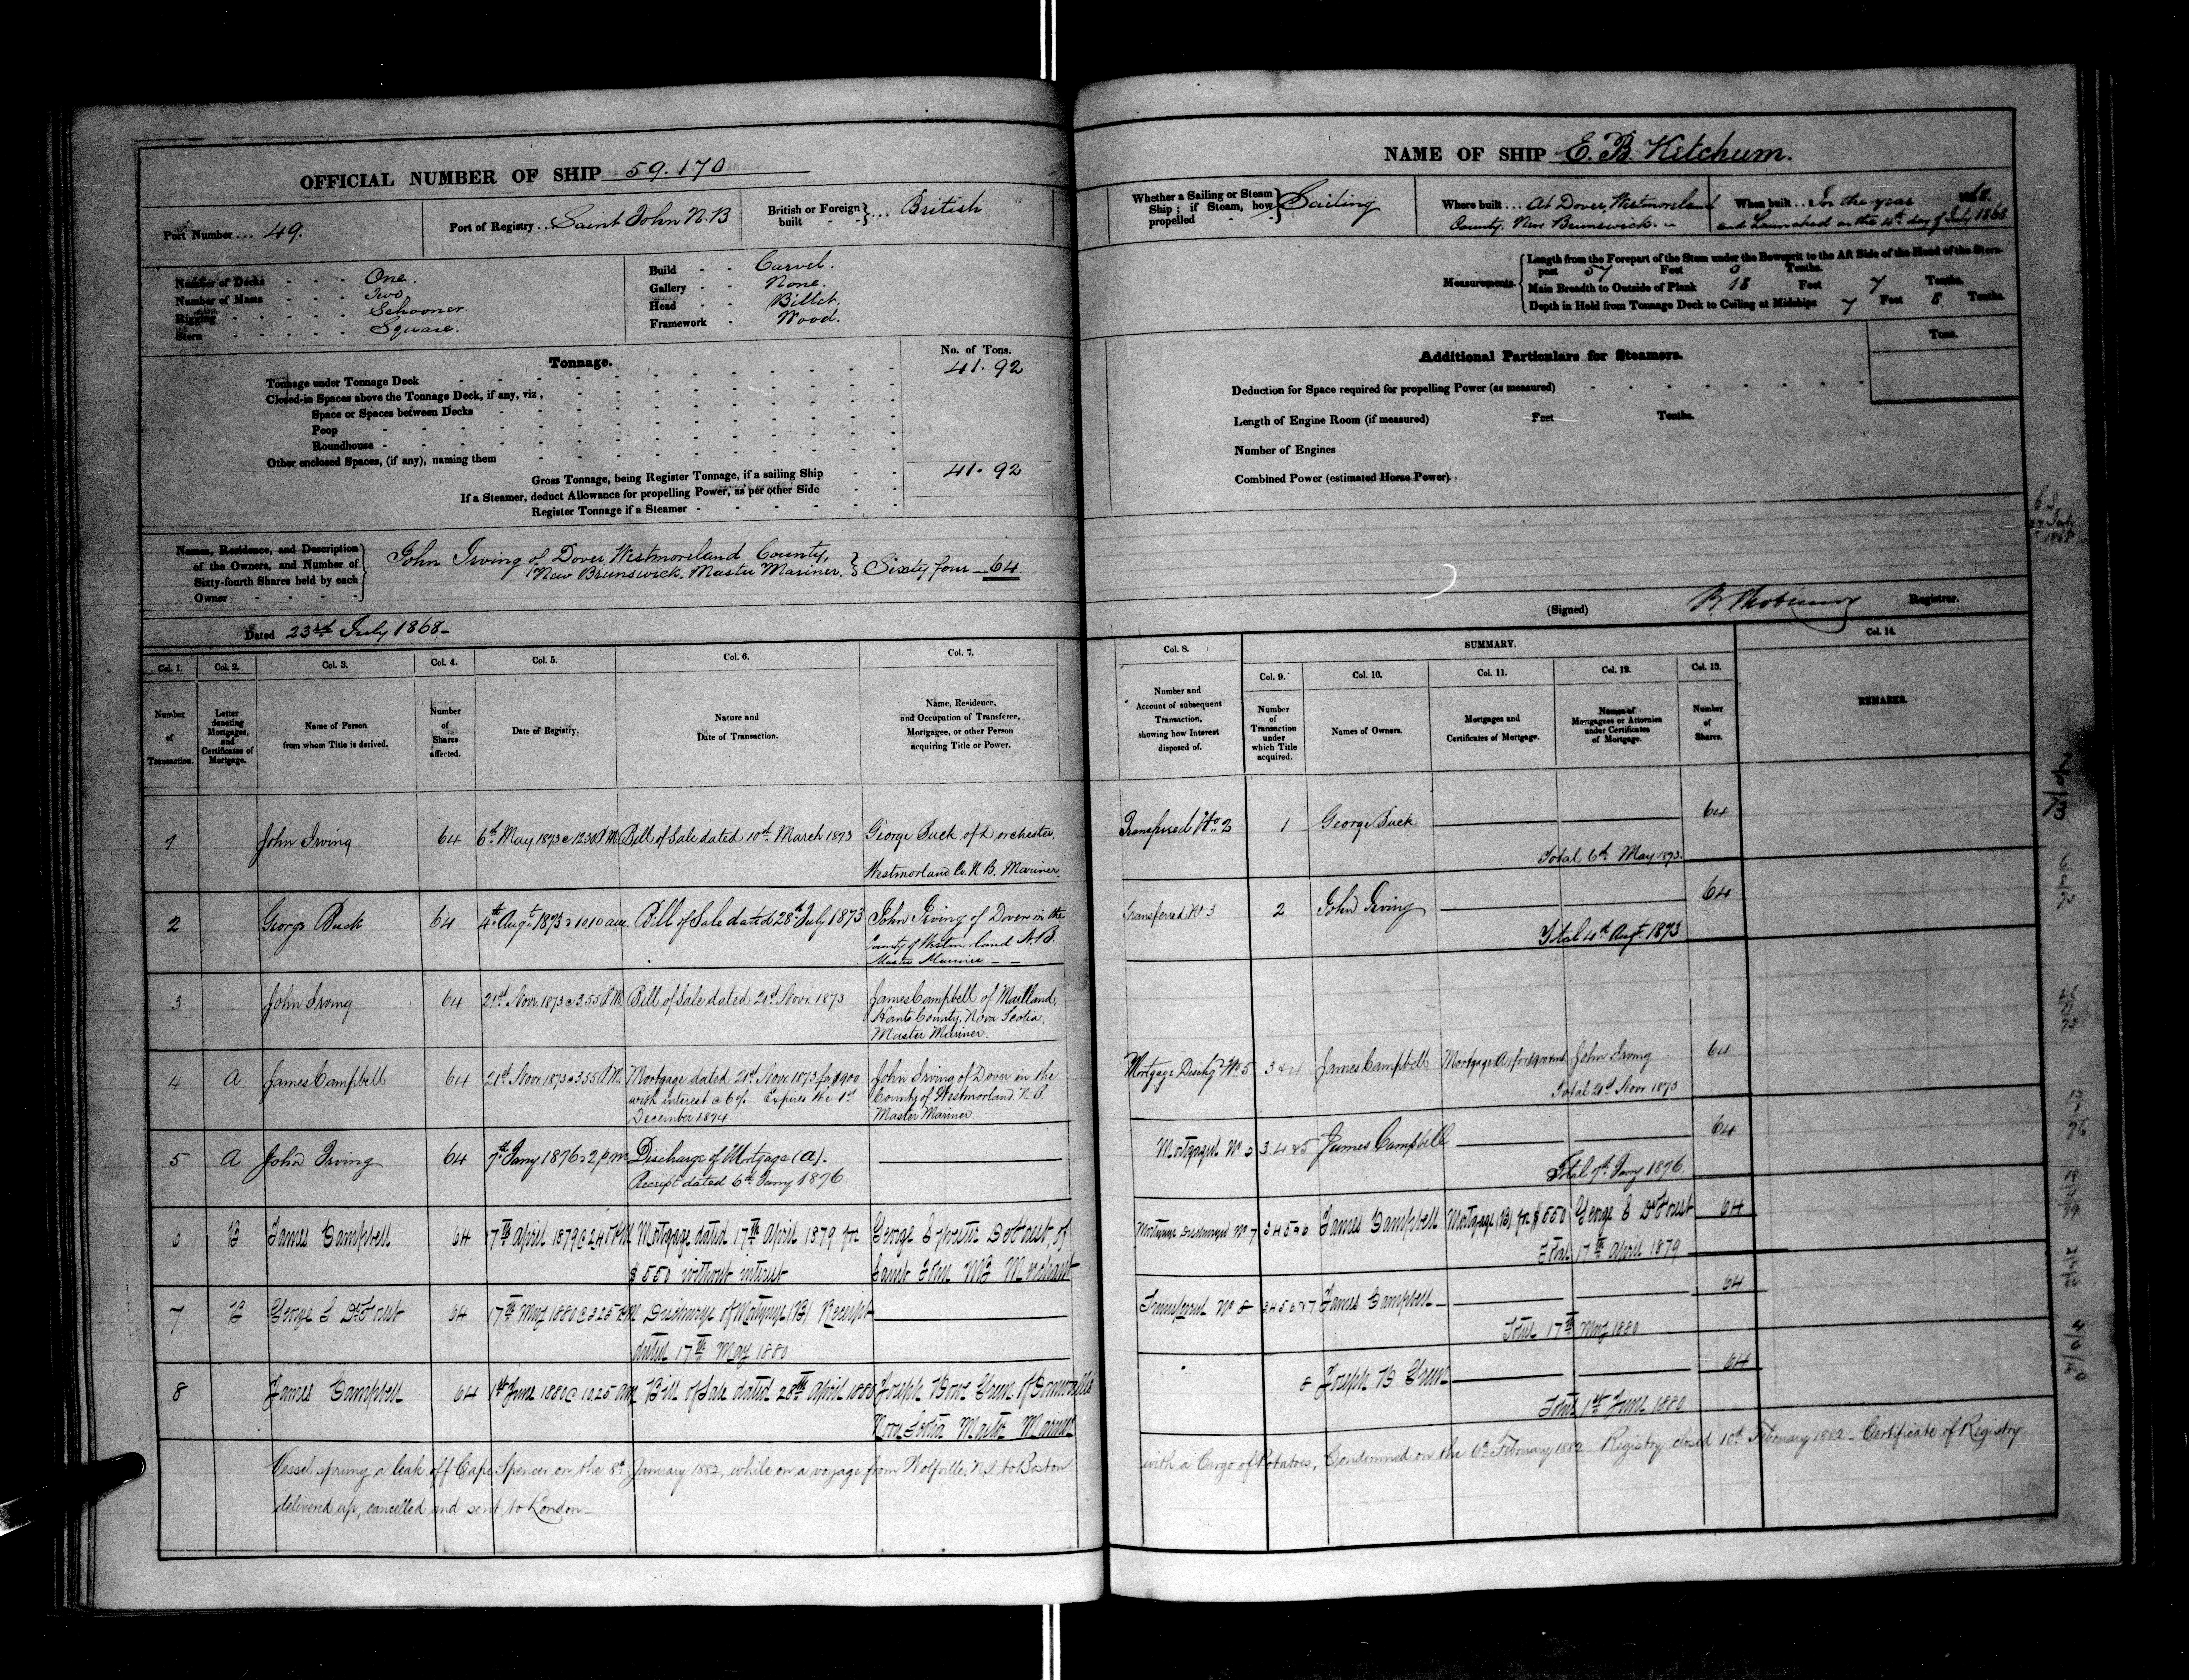 OFFICIAL NUMBER OF SHIP 59.170
Port Number ... 49.
Port of Registry .. Saint John N.B
British or Foreign built } ... British
Number of Decks - - - One.
Number of Masts - - - Two
Rigging - - - - Schooner.
Stern - - - - Square.
Build - - Carvel.
Gallery - - None.
Head - - Billet.
Framework - Wood.
Tonnage.
No. of Tons.
Tonnage under Tonnage Deck 41.92
Closed-in Spaces above the Tonnage Deck, if any, viz,
Space or Spaces between Decks
Poop
Roundhouse
Other enclosed Spaces, (if any), naming them
Gross Tonnage, being Register Tonnage, if a sailing Ship 41.92
If a Steamer, deduct Allowance for propelling Power, as per other Side
Register Tonnage if a Steamer
Names, Residence, and Description
of the Owners, and Number of
Sixty-fourth Shares held by each
Owner
John Irving of Dover, Westmoreland County,
New Brunswick. Master Mariner. } Sixty four — 64
Dated 23rd July 1868 -
Col. 1. Col. 2. Col. 3. Col. 4. Col. 5. Col. 6. Col. 7.
Number of Transaction.
Letter denoting Mortgages, and Certificates of Mortgage.
Name of Person from whom Title is derived.
Number of Shares affected.
Date of Registry.
Nature and Date of Transaction.
Name, Residence, and Occupation of Transferee, Mortgagee, or other Person acquiring Title or Power.
1 John Irving 64 6th May 1873 @ 12.30 P.M. Bill of Sale dated 10th March 1873 George Buck of Dorchester,
Westmorland Co. N.B. Mariner.
2 George Buck 64 4th Augt 1873 @ 10.10 am. Bill of Sale dated 28th July 1873 John Irving of Dover in the
County of Westmorland N.B.
Master Mariner — —
3 John Irving 64 21st Novr. 1873 @ 3.55 P.M. Bill of Sale dated 21st Novr. 1873 James Campbell of Maitland,
Hants County, Nova Scotia.
Master Mariner.
4 A James Campbell 64 21st Novr. 1873 @ 3.55 P.M. Mortgage dated 21st Novr. 1873 for $900 John Irving of Dover in the
with interest @ 6% - Expires the 1st County of Westmorland N.B.
December 1874 Master Mariner.
5 A John Irving 64 7th Jany 1876 @ 2 p.m. Discharge of Mortgage (A).
Receipt dated 6th Jany 1876.
6 B James Campbell 64 17th April 1879 @ 2.45 PM Mortgage dated 17th April 1879 for George S DeForest of
$550 without interest Saint John NB Merchant
7 B George S DeForest 64 17th May 1880 @ 3.25 PM Discharge of Mortgage (B) Receipt
dated 17th May 1880
8 James Campbell 64 1st June 1880 @ 10.25 am Bill of Sale dated 28th April 1880 Joseph
Nova Scotia Master Mariner
Vessel sprung a leak off Cape Spencer, on the 8th January 1882, while on a voyage from Wolfville, N.S. to Boston
delivered up, cancelled and sent to London -
NAME OF SHIP E. B. Ketchum.
Whether a Sailing or Steam Ship ; if Steam, how propelled } Sailing
Where built ... At Dover, Westmoreland
County, New Brunswick.
When built ... In the year 1868.
and Launched on the 4th day of July 1868
Measurements.
Length from the Forepart of the Stem under the Bowsprit to the Aft Side of the Head of the Stern-
post 57 Feet 0 Tenths.
Main Breadth to Outside of Plank 18 Feet 7 Tenths.
Depth in Hold from Tonnage Deck to Ceiling at Midships 7 Feet 8 Tenths.
Additional Particulars for Steamers.
Tons.
Deduction for Space required for propelling Power (as measured)
Length of Engine Room (if measured) Feet Tenths.
Number of Engines
Combined Power (estimated Horse Power)
(Signed) Registrar.
Col. 8. SUMMARY. Col. 14.
Col. 9. Col. 10. Col. 11. Col. 12. Col. 13.
Number and Account of subsequent Transaction, showing how Interest disposed of.
Number of Transaction under which Title acquired.
Names of Owners.
Mortgages and Certificates of Mortgage.
Names of Mortgagees or Attornies under Certificates of Mortgage.
Number of Shares.
REMARKS.
Transferred No. 2 1 George Buck 64
Total 6th May 1873.
Transferred No 3 2 John Irving 64
Total 4th Augt. 1873
Mortgage Dischgd No 5 3 & 4 James Campbell Mortgage A for $900 John Irving 64
Total 21st Novr. 1873
Mortgaged No 3.4 & 5 James Campbell 64
Total 7th Jany 1876.
Mortgage Discharged No 7 3 4 5 & 6 James Campbell Mortgage (B) for $550 George S DeForest 64
Total 17th April 1879
Transferred No 8 3 4 5 6 & 7 James Campbell 64
Total 17th May 1880
8 Joseph B 64
Total 1st June 1880
with a Cargo of Potatoes, Condemned on the 6th February 1882 Registry closed 10th February 1882 - Certificate of Registry